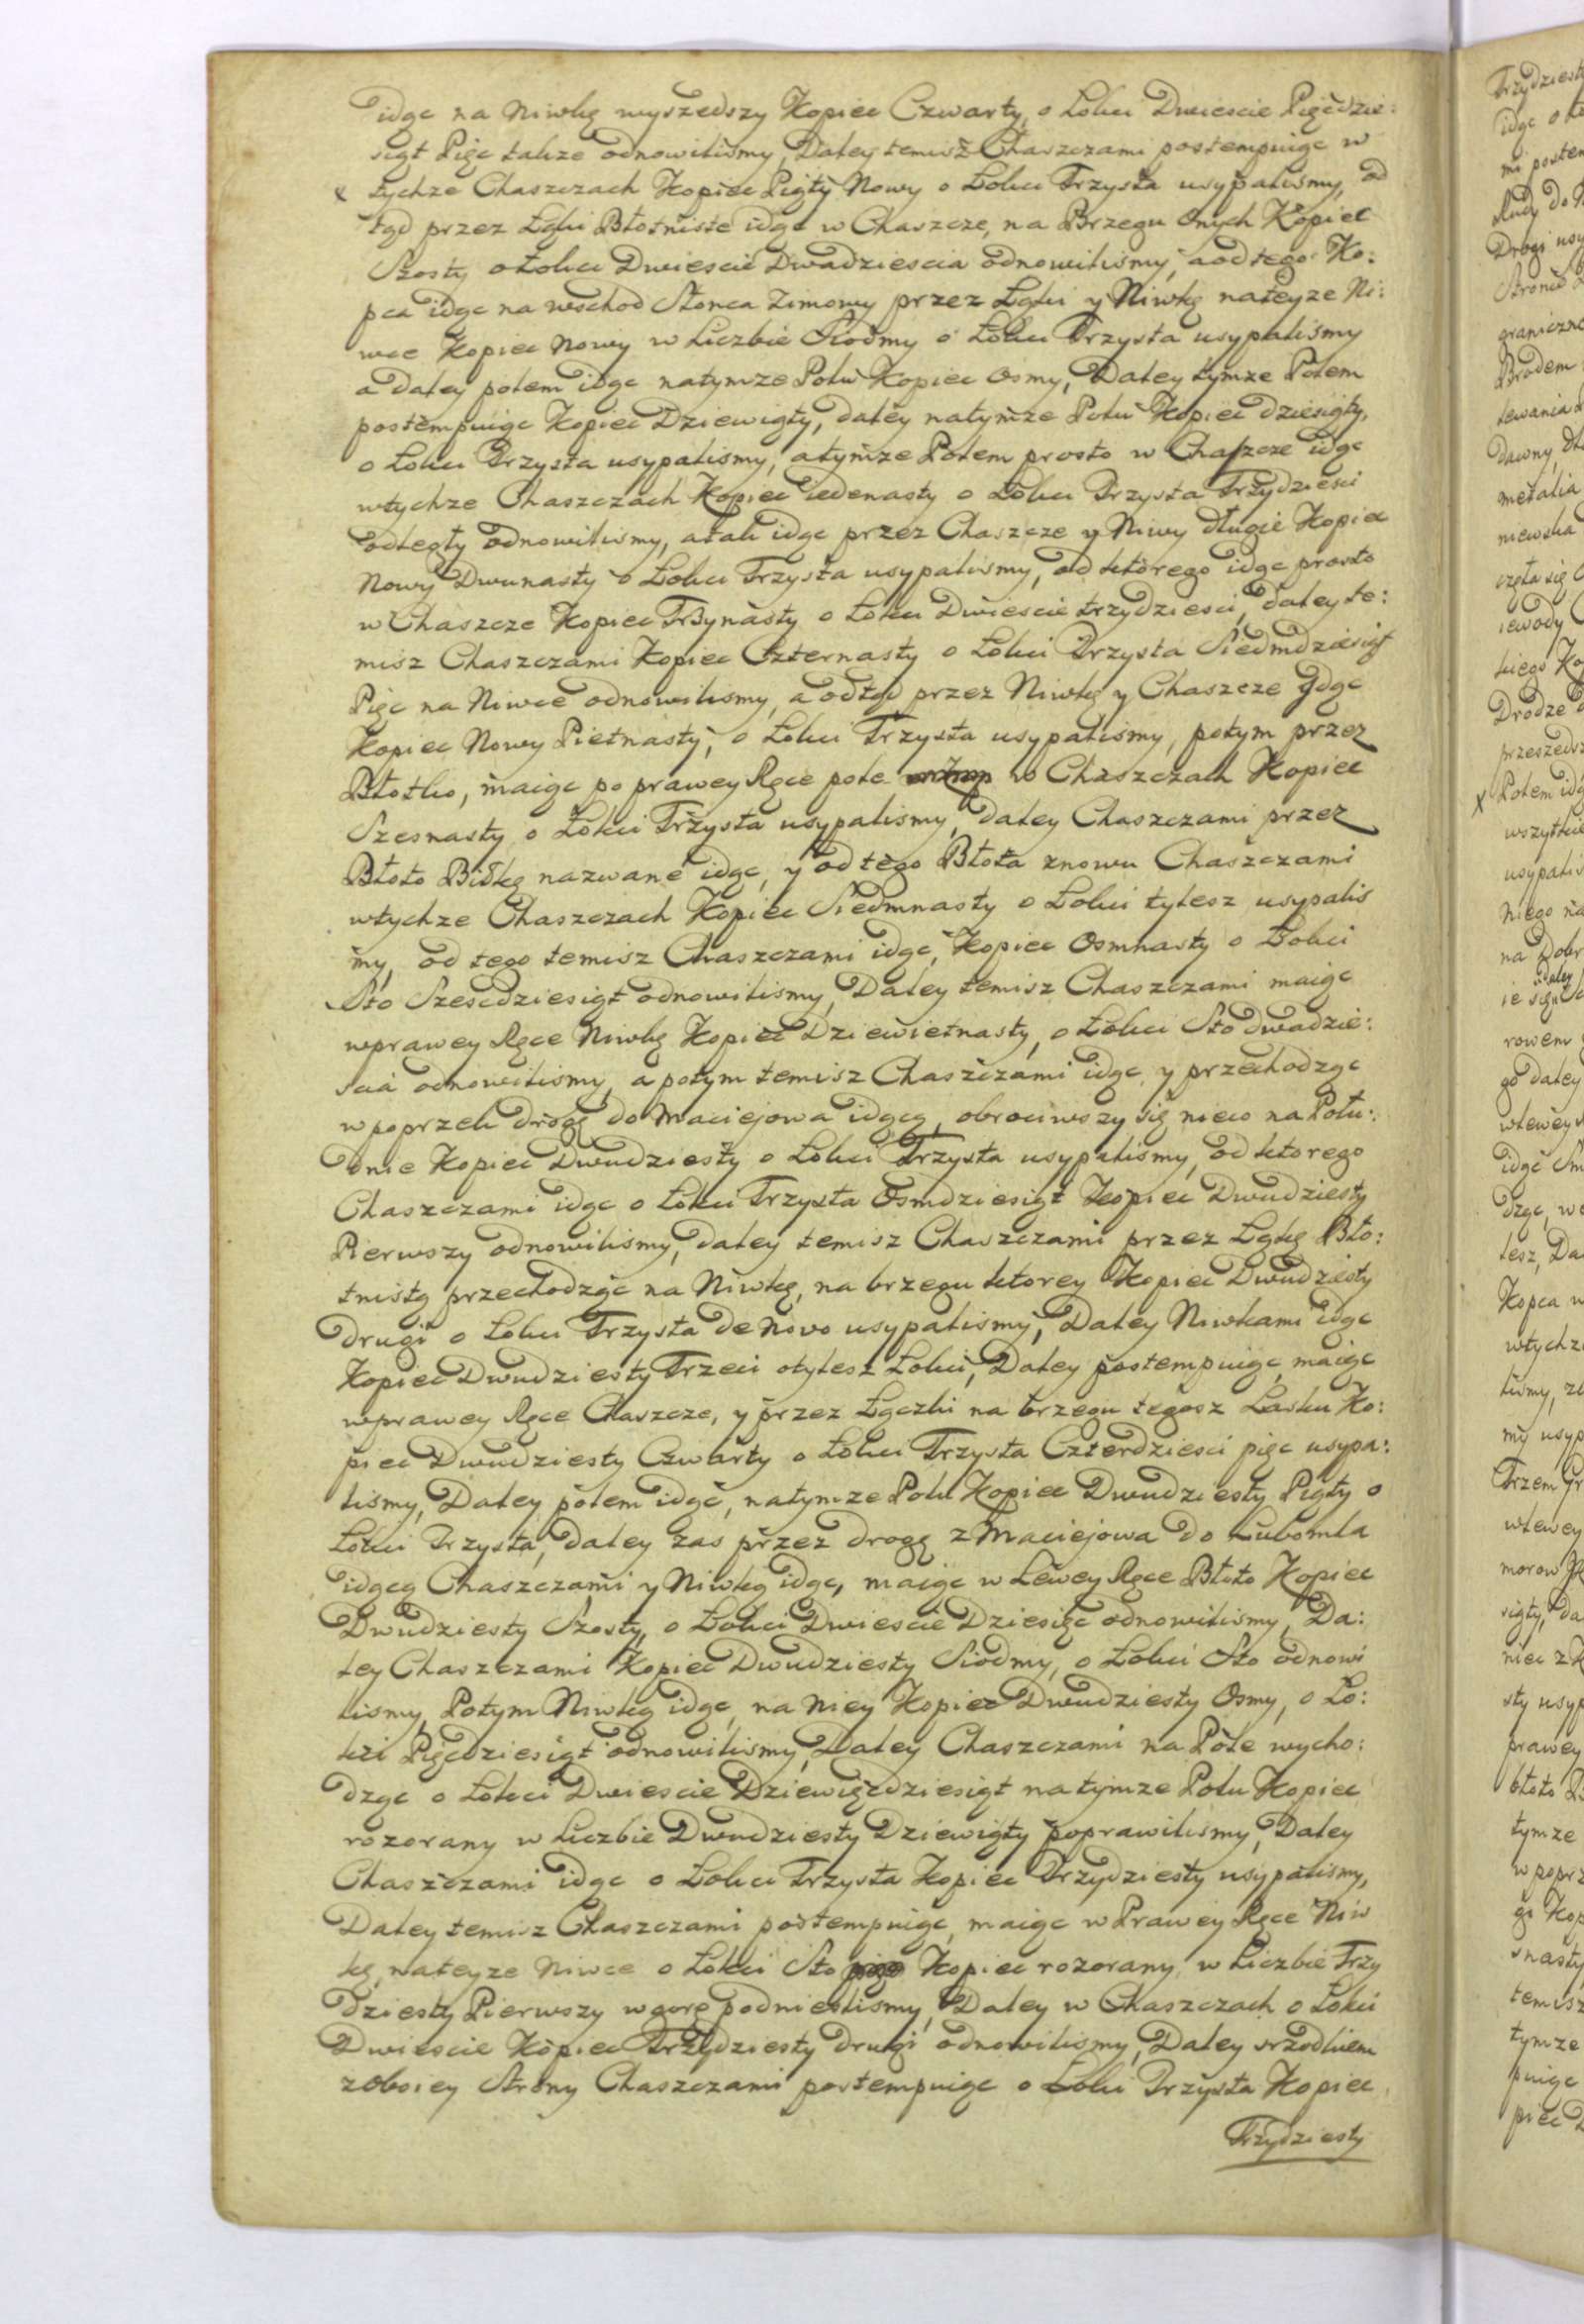 idąc na Niwkę wyszedszy Kopiec Czwarty, o Łokci Dwiescie Pięcdzie:
siąt Pięc takze odnowilismy, Daley temisz Chaszczami postempuiąc w
x tychze Chaszczach Kopiec Piąty Nowy o Łokci Trzysta usypalismy, od
tąd przez Łąki Błotniste idąc w Chaszcze, na Brzegu onych Kopiec
Szosty o Łokci Dwiescie Dwadziescia odnowilismy, a od tego Ko:
pca idąc na wschod Słonca Zimowy przez Łąki y Niwkę na teyze Ni:
wce Kopiec Nowy w Liczbie Siodmy o Łokci Trzysta usypalismy
a daley polem idąc natymze Polu Kopiec Osmy, Daley tymze Polem
postempuiąc Kopiec Dziewiąty, daley natymze Polu Kopiec dziesiąty,
o Łokci Trzysta usypalismy, a tymze Polem prosto w Chaszcze idąc
wtychze Chaszczach Kopiec iedenasty o Łokci Trzysta Trzydziesci
odległy odnowilismy, a tak idąc przez Chaszcze y Niwy długie Kopiec
Nowy Dwunasty o Łokci Trzysta usypalismy, od ktorego idąc prosto
w Chaszcze Kopiec Trzynasty o Łokci Dwiescie trzydziesci, daley te:
misz Chaszczami Kopiec Czternasty o Łokci Trzysta Siedmdziesiąt
Pięc na Niwce odnowilismy, a odtąd przez Niwkę y Chaszcze Jdąc
Kopiec Nowy Pietnasty, o Łokci Trzysta usypalismy, potym przez
Błotko, maiąc po prawey Ręce pole w Chaszczach Kopiec
Szesnasty o Łokci Trzysta usypalismy, daley Chaszczami przez
Błoto Bidkę nazwane idąc, y od tego Błota znowu Chaszczami
wtychze Chaszczach Kopiec Siedmnasty o Łokci tylesz usypalis
my, od tego temisz Chaszczami idąc, Kopiec Osmnasty o Łokci
Sto Szescdziesiąt odnowilismy, Daley temisz Chaszczami maiąc
wprawey Ręce Niwkę Kopiec Dziewietnasty, o Łokci Sto dwadzie:
scia odnowilismy, a potym temisz Chaszczami idąc, y przechodząc
wpoprzek drogę do Maciejowa idącą, obrociwszy się nieco na Połu:
dnie Kopiec Dwudziesty o Łokci Trzysta usypalismy, od ktorego
Chaszczami idąc o Łokci Trzysta Osmdziesiąt Kopiec Dwudziesty
Pierwszy odnowilismy, daley temisz Chaszczami przez Łąkę Bło:
tnistą przechodząc na Niwkę, na brzegu ktorey Kopiec Dwudziesty
drugi o Łokci Trzysta de Novo usypalismy, Daley Niwkami idąc
Kopiec Dwudziesty Trzeci otylesz Łokci, Daley postempuiąc, maiąc
wprawey Ręce Chaszcze, y przez Łączki na brzegu tegosz Lasku Ko:
piec Dwudziesty Czwarty o Łokci Trzysta Czterdziesci pięc usypa:
lismy, Daley polem idąc, natymze Polu Kopiec Dwudziesty Piąty o
Łokci Trzysta, daley zas przez drogę z Maciejowa do Lubomla
idącą Chaszczami y Niwką idąc, maiąc w Lewey Ręce Błoto Kopiec
Dwudziesty Szosty, o Łokci Dwiescie Dziesięc odnowilismy, Da:
ley Chaszczami Kopiec Dwudziesty Siodmy, o Łokci Sto odnowi
lismy, Potym Niwką idąc, na Niey Kopiec Dwudziesty Osmy, o Ło:
kci Pięcdziesiąt odnowilismy, Daley Chaszczami na Pole wycho:
dząc o Łokci Dwiescie Dziewięcdziesiąt na tymze Polu Kopiec
rozorany w Liczbie Dwudziesty Dziewiąty poprawilismy, Daley
Chaszczami idąc o Łokci Trzysta Kopiec Trzydziesty usypalismy,
Daley temisz Chaszczami postempuiąc, maiąc w Prawey Ręce Niw
kę, nateyze Niwce o Łokci Sto Kopiec rozorany w Liczbie Trzy
dziesty Pierwszy wgorę podnieslismy, Daley w Chaszczach o Łokci
Dwiescie Kopiec Trzydziesty drugi odnowilismy, Daley srzodkiem
zoboiey Strony Chaszczami postempuiąc o Łokci Trzysta Kopiec
Trzydziesty